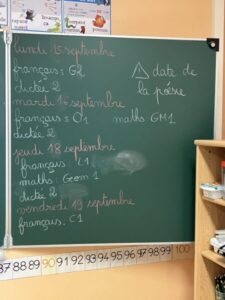 lundi 15 septembre
français : G2
dictée 2
⚠ date de la poésie
mardi 16 septembre
français : O1 maths GM1
dictée 2
jeudi 18 septembre
français : L1
maths : Geom 1
dictée 2
vendredi 19 septembre
français : C1
87 88 89 90 91 92 93 94 95 96 97 98 99 100